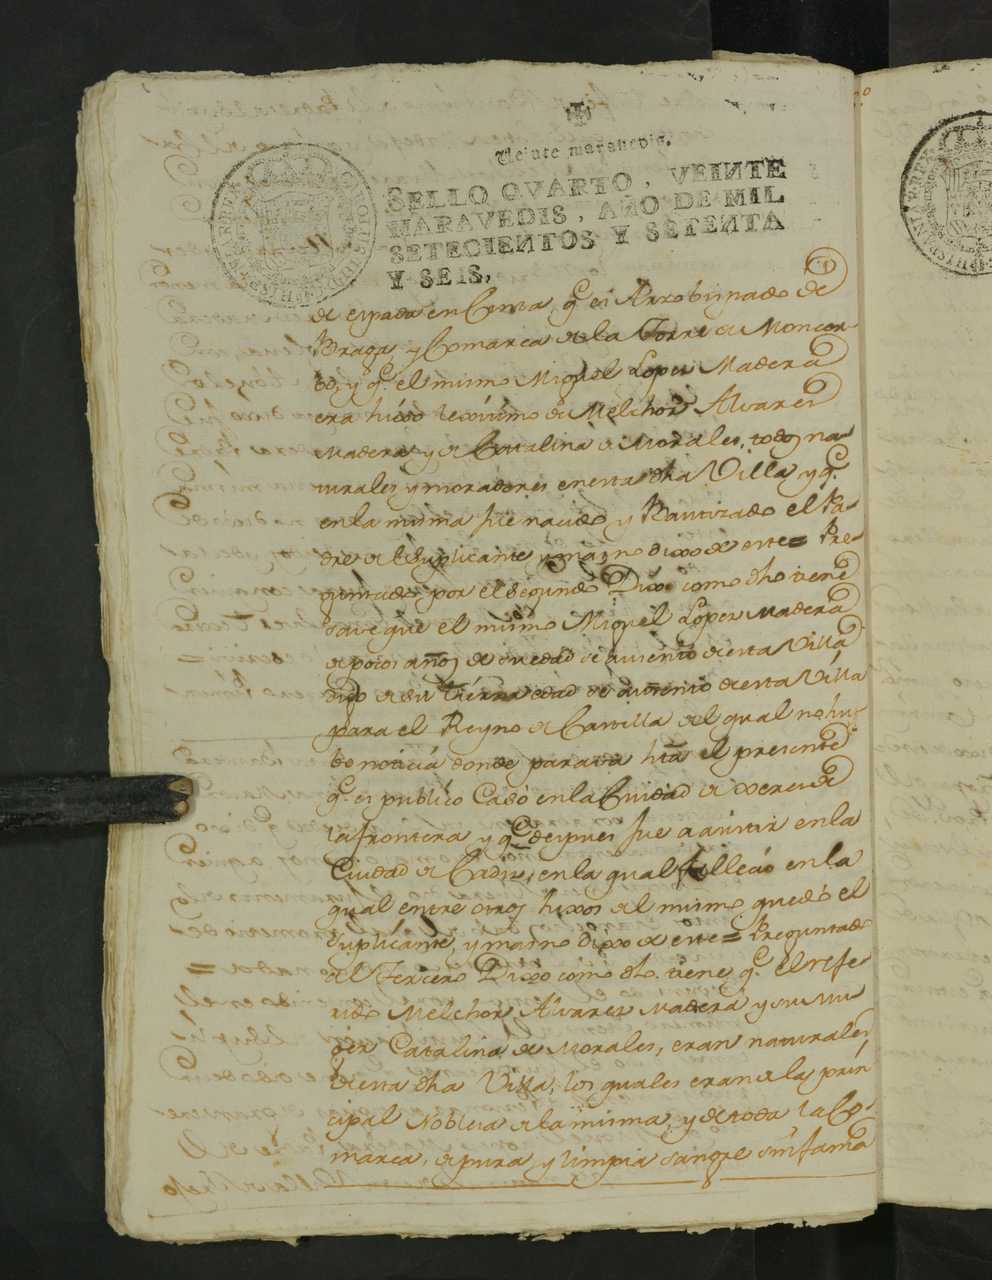 Veinte maravedis.
SELLO QVARTO, VEINTE
MARAVEDIS, AÑO DE MIL
SETECIENTOS Y SETENTA
Y SEIS.
de espada en Cinta, q.e es Arzobispado de
Braga, y Comarca de la Torre de Moncor
bo, y q.e el mismo Miguel Lopez Madera
era hijo lexitimo de Melchor Alvarez
Madera y de Catalina de Morales, todos na-
turales y moradores en esta dha Villa, y q.e
en la misma fue nacido y Bautizado el Pa-
dre del Suplicante y mas no dixo de este = Pre-
guntado por el segundo Dixo como dho tiene
save que el mismo Miguel Lopez Madera
de pocos años de su edad se ausentó de esta Villa
digo de su tierna edad se ausentó de esta Villa
para el Reyno de Castilla del qual no hu-
bo noticia donde parava hta el presente
q.e es publico Casó en la Ciudad de Xerez de
la frontera y q.e despues fue a asistir en la
Ciudad de Cadiz, en la qual falleció en la
qual entre otros hixos del mismo quedó el
Suplicante, y mas no dixo de este = Preguntado
al Tercero Dixo como dho tiene q.e el refe-
rido Melchor Alvarez Madera y su Mu
ger Catalina de Morales, eran naturales
de esta dha Villa, los quales eran de la prin
cipal Nobleza de la misma, y de toda la Co-
marca, de pura y limpia sangre sin fama